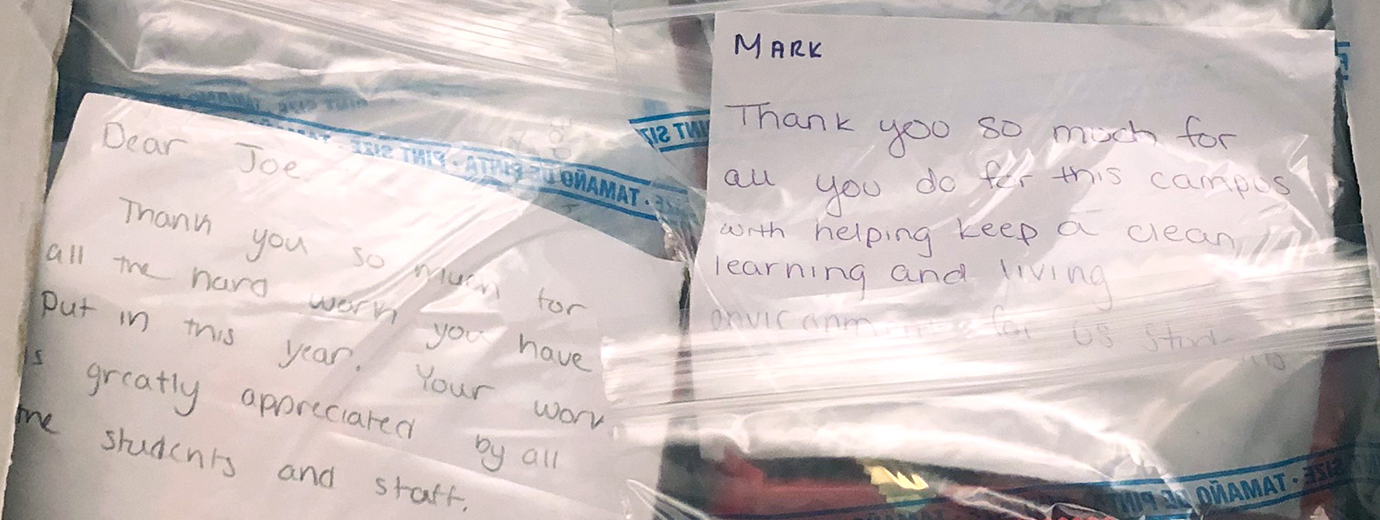 Dear Joe.
Thank you so much for
all the hard work you have
put in this year. Your work
is greatly appreciated by all
the students and staff.
MARK
Thank you so much for
all you do for this campus
with helping keep a clean
learning and living
for US
TAMAÑO DE PINTA · PINT SIZE
PINT SIZE
TAMAÑO DE PINT
SIZE